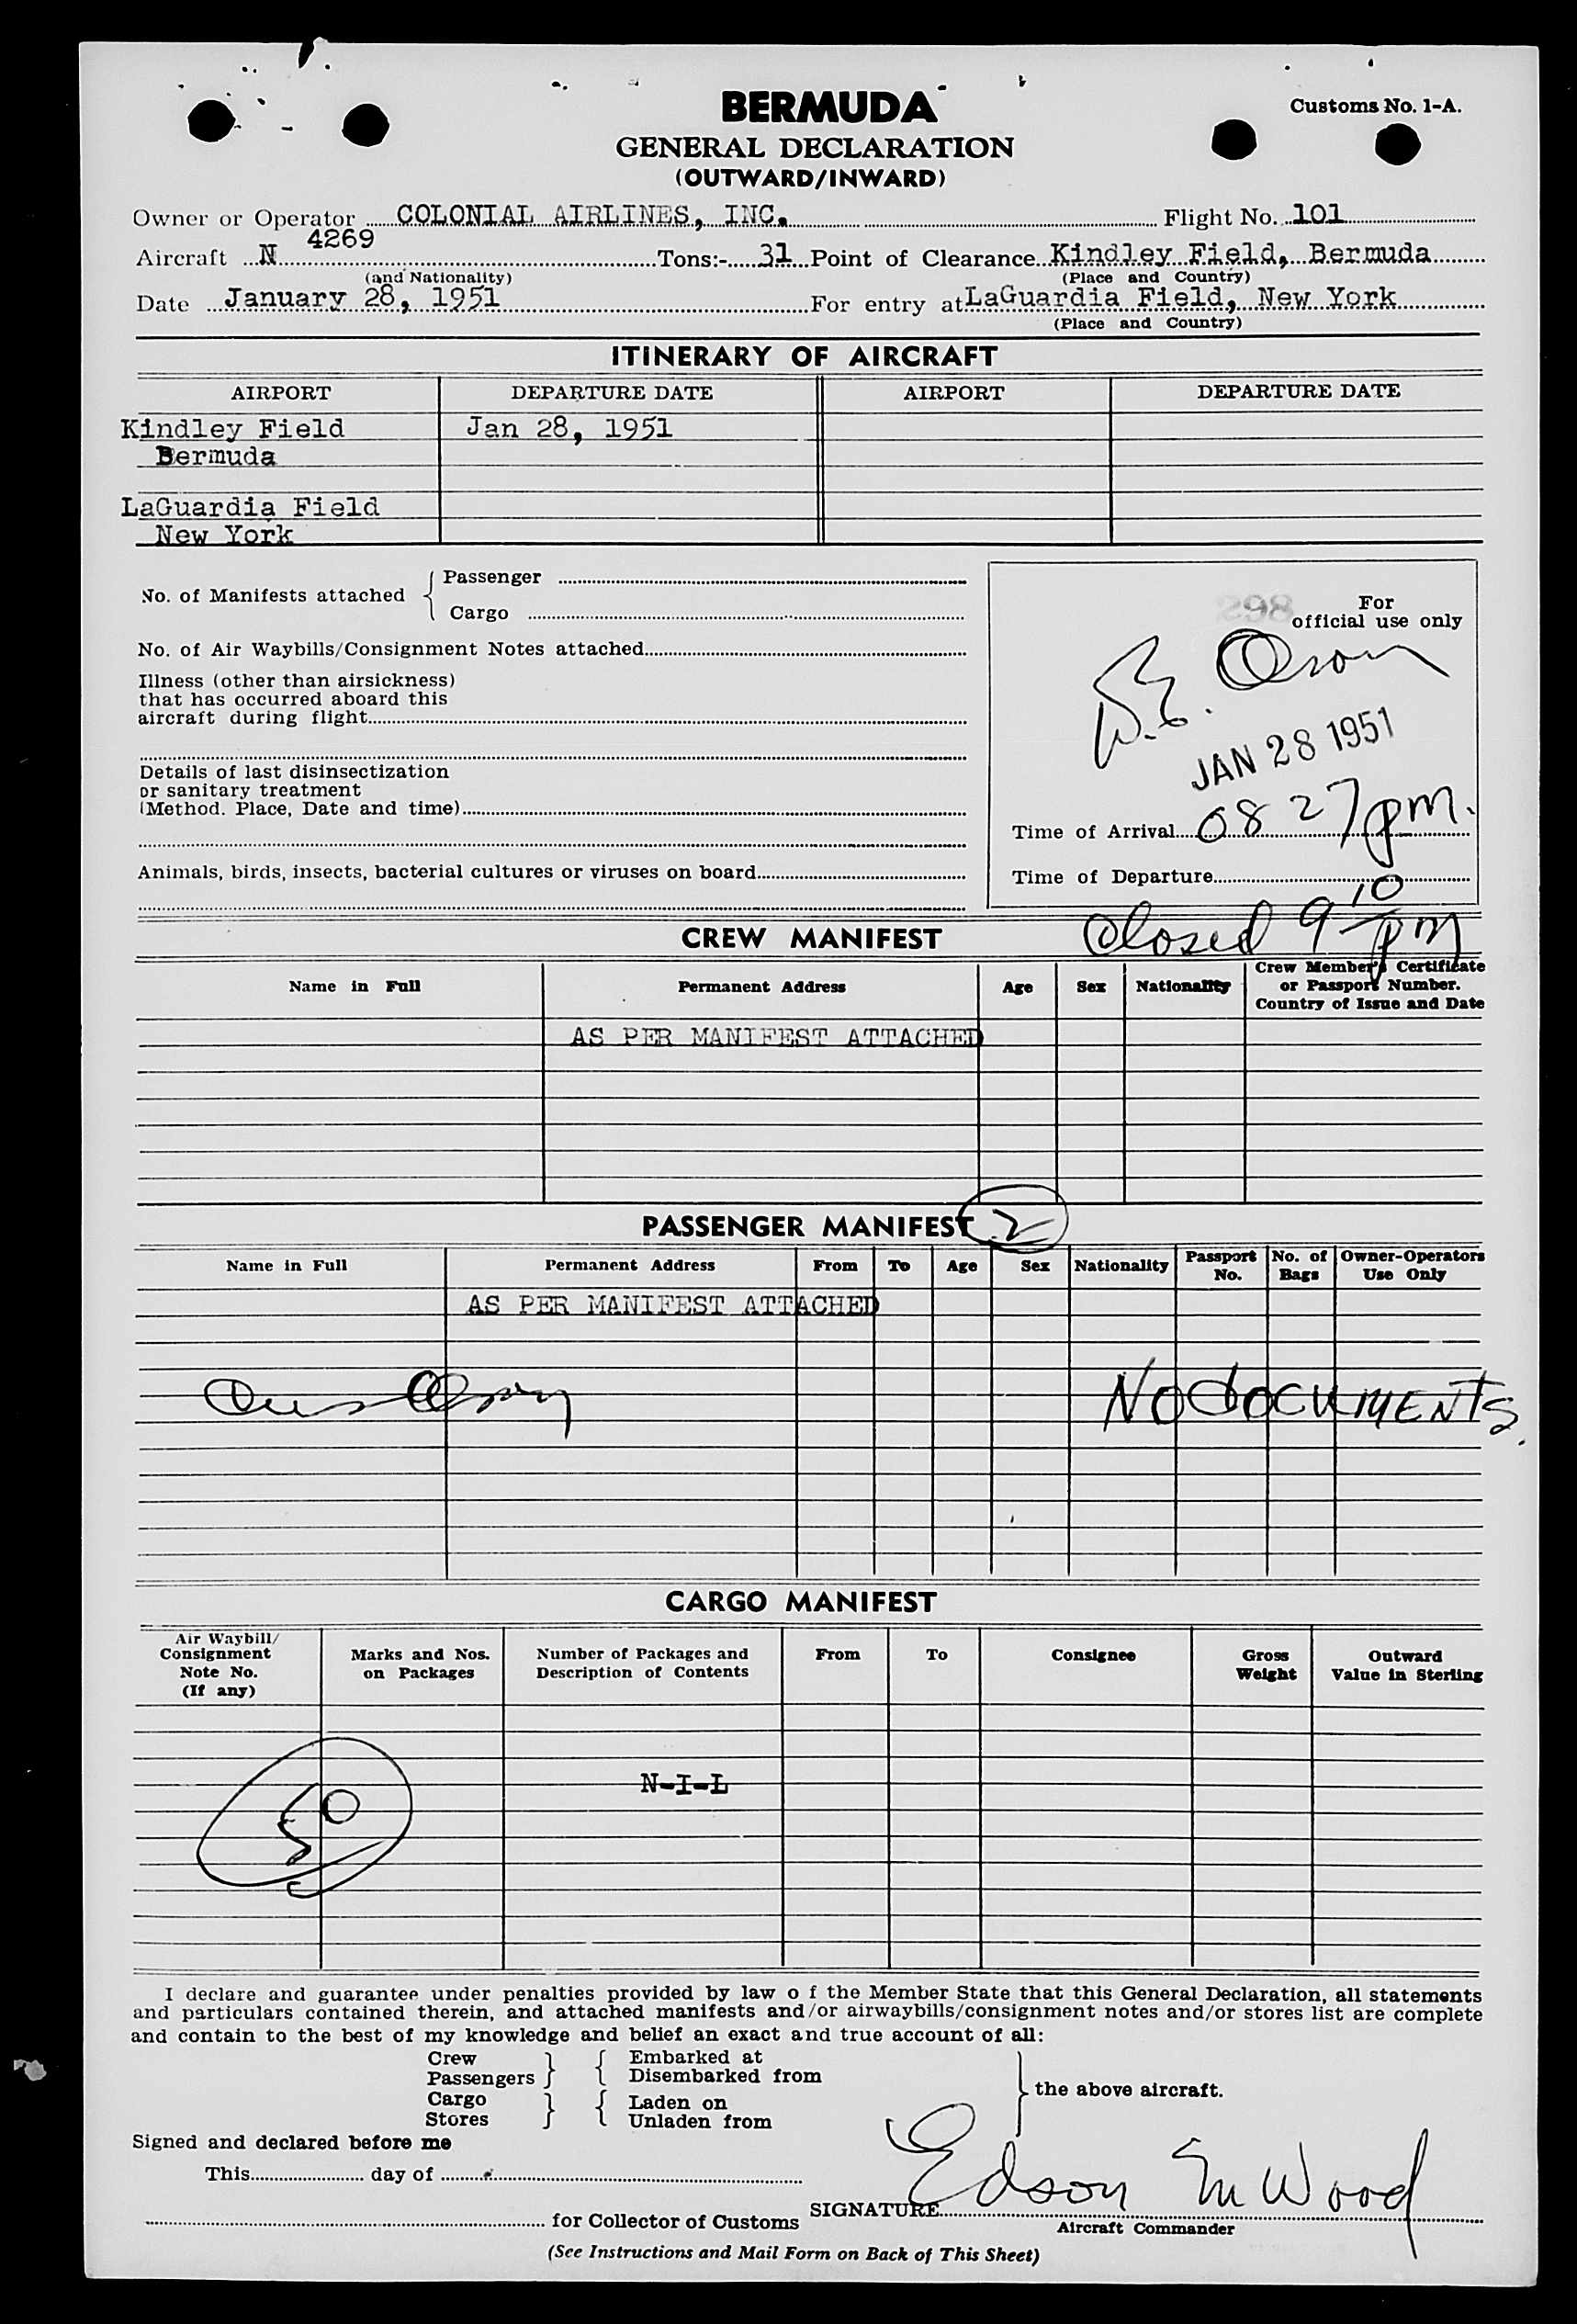 BERMUDA
Customs No. 1-A.
GENERAL DECLARATION
(OUTWARD/INWARD)
Owner or Operator COLONIAL AIRLINES, INC. Flight No. 101
Aircraft N 4269 Tons:- 31 Point of Clearance Kindley Field, Bermuda
(and Nationality) (Place and Country)
Date January 28, 1951 For entry at LaGuardia Field, New York
(Place and Country)
ITINERARY OF AIRCRAFT
AIRPORT DEPARTURE DATE AIRPORT DEPARTURE DATE
Kindley Field Jan 28, 1951
Bermuda
LaGuardia Field
New York
No. of Manifests attached { Passenger
Cargo
No. of Air Waybills/Consignment Notes attached
Illness (other than airsickness)
that has occurred aboard this
aircraft during flight
Details of last disinsectization
or sanitary treatment
(Method. Place, Date and time)
Animals, birds, insects, bacterial cultures or viruses on board
298 For
official use only
Olson
JAN 28 1951
Time of Arrival 08 27 pm.
Time of Departure
Closed 9 10 pm
CREW MANIFEST
Name in Full Permanent Address Age Sex Nationality Crew Member's Certificate
or Passport Number.
Country of Issue and Date
AS PER MANIFEST ATTACHED
PASSENGER MANIFEST 2
Name in Full Permanent Address From To Age Sex Nationality Passport No. No. of Bags Owner-Operators Use Only
AS PER MANIFEST ATTACHED
NO DOCUMENTS.
CARGO MANIFEST
Air Waybill/
Consignment
Note No.
(If any)
Marks and Nos.
on Packages
Number of Packages and
Description of Contents
From To Consignee
Gross
Weight
Outward
Value in Sterling
N-I-L
50
I declare and guarantee under penalties provided by law o f the Member State that this General Declaration, all statements
and particulars contained therein, and attached manifests and/or airwaybills/consignment notes and/or stores list are complete
and contain to the best of my knowledge and belief an exact and true account of all:
Crew } { Embarked at
Passengers } { Disembarked from
the above aircraft.
Cargo } { Laden on
Stores } { Unladen from
Signed and declared before me
This day of
Edson M Wood
SIGNATURE
for Collector of Customs
Aircraft Commander
(See Instructions and Mail Form on Back of This Sheet)